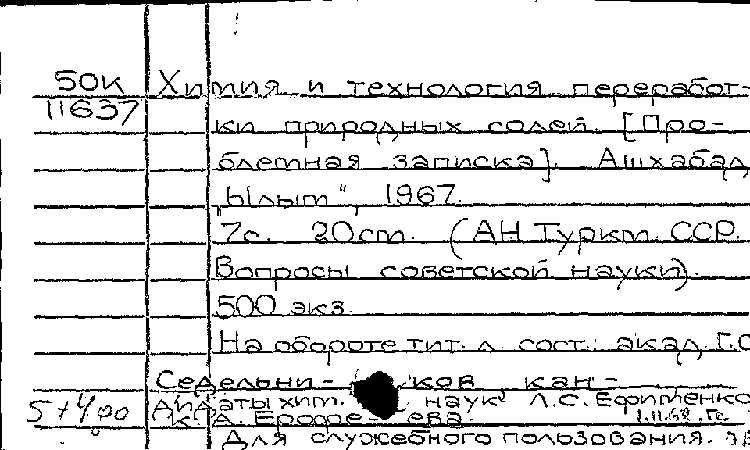 50к Химия и технология переработ-
11637 ки природных солей. [Про-
блемная записка]. Ашхабад,
"Ылым", 1967.
7с. 20см. (АН Туркм. ССР.
Вопросы советской науки).
500 экз.
На обороте тит. л. сост.: акад. Г.С.
Седельни- ков кан-
дидаты хим. наук Л.С. Ефименко
К. А. Ерофе- ева.
Для служебного пользования.